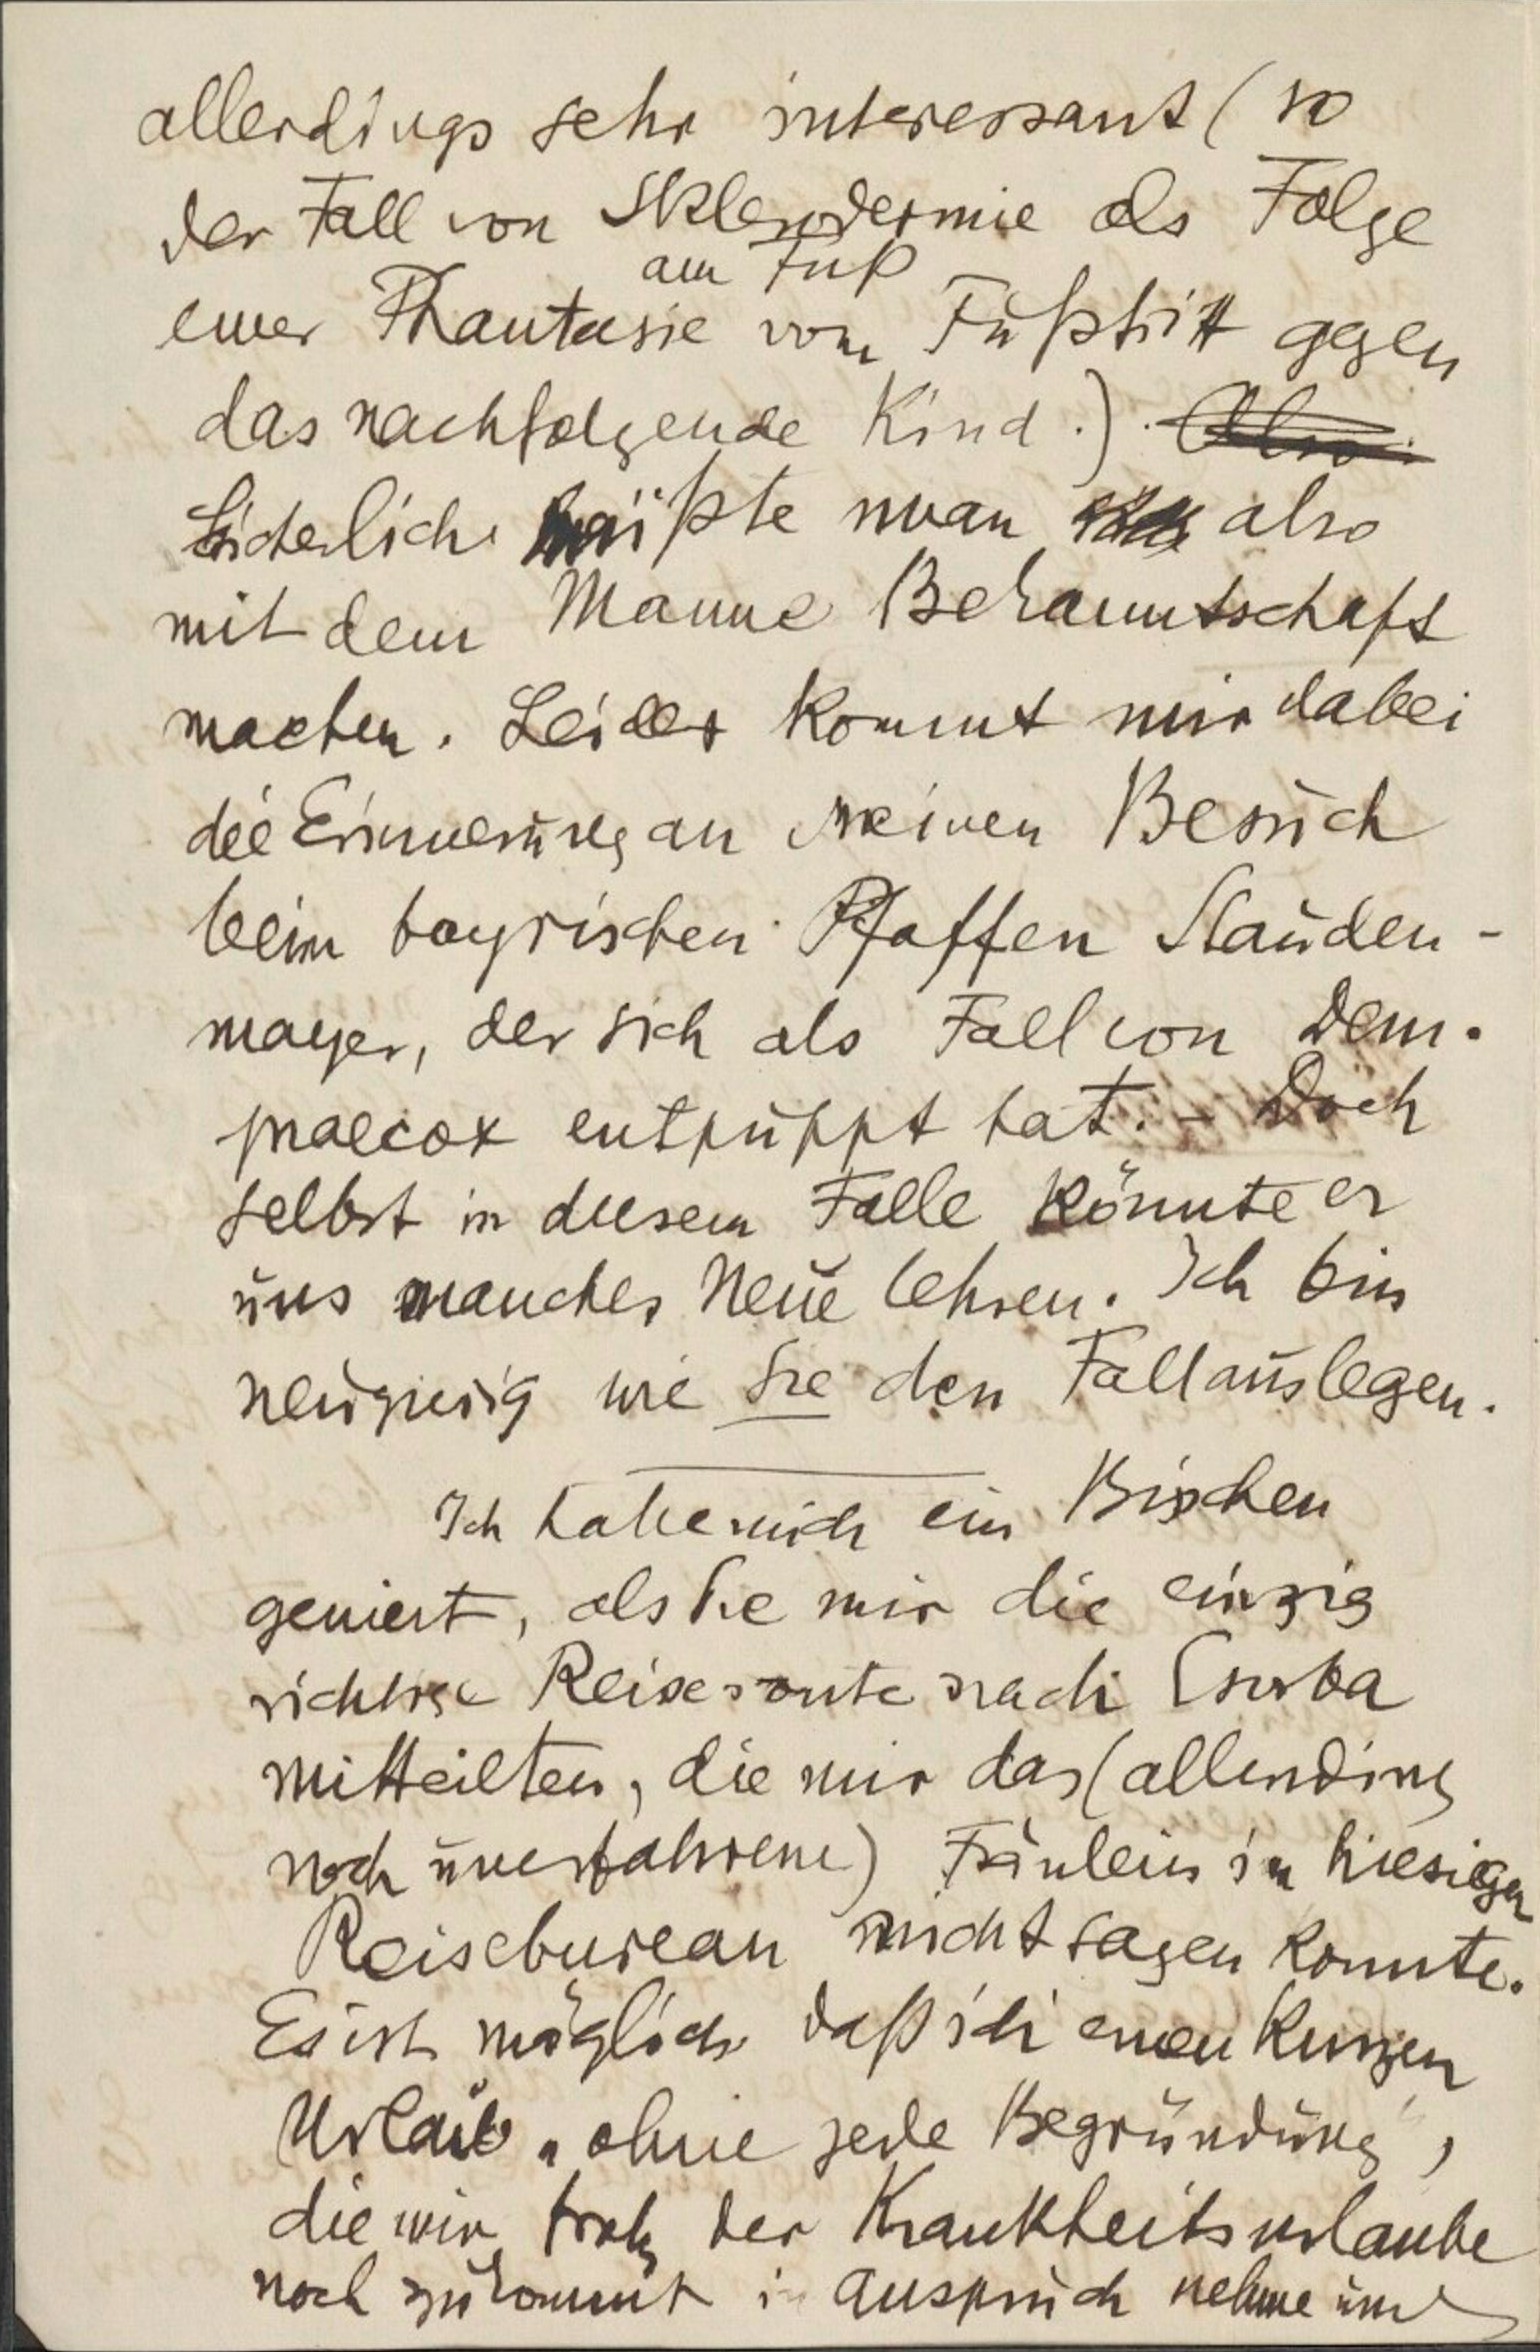 allerdings sehr interessant (so
der Fall von Sklerodermie als Folge
am Fuß
einer Phantasie vom Fußtritt gegen
das nachfolgende Kind.). Also
Sicherlich müßte man also
mit dem Manne Bekanntschaft
machen. Leider kommt mir dabei
die Erinnerung an meinen Besuch
beim bayrischen Pfaffen Stauden-
mayer, der sich als Fall von Dem.
praecox entpuppt hat. – Doch
selbst in diesem Falle könnte er
uns manches Neue lehren. Ich bin
neugierig wie Sie den Fall auslegen.
Ich habe mich ein Bischen
geniert, als Sie mir die einzig
richtige Reiseroute nach Csorba
mitteilten, die mir das (allerdings
noch unerfahrene) Fräulein im hiesigen
Reisebureau nicht sagen konnte.
Es ist möglich daß ich einen kurzen
Urlaub „ohne jede Begründung",
die mir trotz der Krankheitsurlaube
noch zukommt in Anspruch nehme und